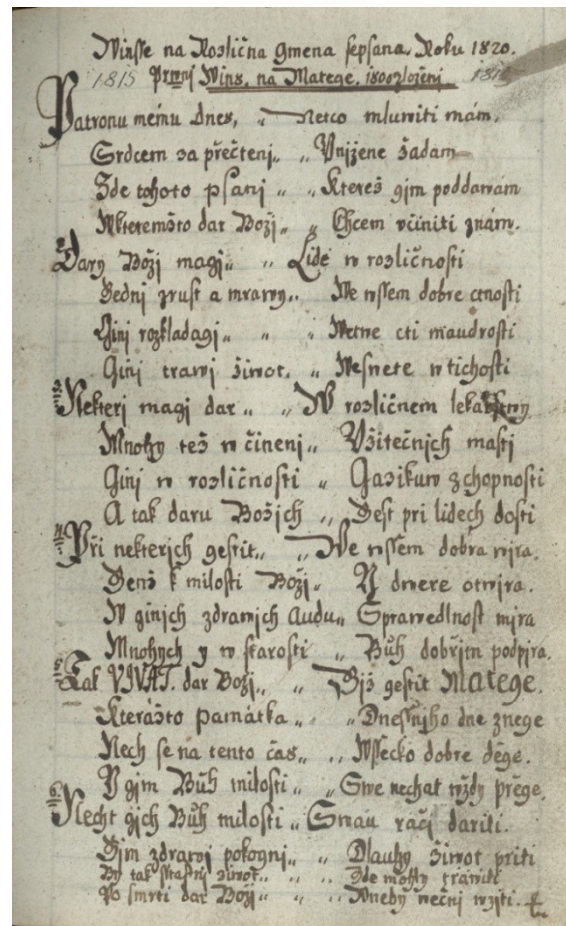 Winsse na Rozlična Gmena sepsana. Roku 1820.
1815 Prwnj Wins. na Matege. 1800 zložění 1815
Patronu mému dnes, „ Netco mluwiti mám,
Srdcem za přečtenj„ „ Vnižene žadam
Zde tohoto psanj „ „ Ktereš gim poddawám
Wkteremžto dar Boži„ „ Chcem včiniti znám.
2. Dary Božj magj„ „ Lidé w rozličnosti
Gednj zrust a mrawy„ We wssem dobre ctnosti
Ginj rozkladagi„ „ „ Wetwe cti maudrosti
Ginj trawj život. „ Wesnete w tichosti
3. Nekterj magj dar „ „ W rozličnem lekařstwy
Mnohy též w činenj„ Vžitečnjch mastj
Ginj w rozličnosti „ Gazikuw zchopnosti
A tak daru Božjch „ Gest pri lidech dosti
4. Při nekterjch gestit„ „ We wssem dobra wjra.
Genž k milosti Božj„ Y dwere otwjra.
W ginjch zdrawjch Audu„ Sprawedlnost mjra
Mnohych y w starosti „ Bůh dobřjm podpjra.
5. Tak VIVAT. dar Božj„ „ Giž gestit Matege.
Kterážto památka „ „ Dnessnjho dne znege
Nech se na tento čas„ „ Wssecko dobre děge.
Y gim Bůh milosti „ „ Swe nechat wždy přege.
6. Necht gich Bůh milosti „ Swau račj dariti.
Gim zdrawj pokognj„ „ Dlauhy život přiti
By tak sstastnj život„ „ „ Zde mohly trawiti
Po smrti dar Božj „ „ „ Wneby večnj wzjti.